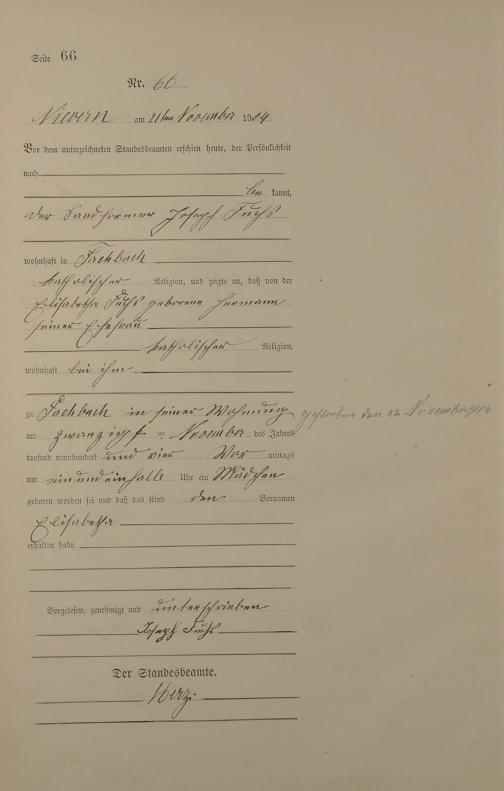 Seite 66
Nr. 66
Nievern am 21ten November 1904.
Vor dem unterzeichneten Standesbeamten erschien heute, der Persönlichkeit
nach
be kannt,
der Sandformer Joseph Fuchs
wohnhaft in Fachbach
katholischer Religion, und zeigte an, daß von der
Elisabetha Fuchs geborene Hermann
seiner Ehefrau
katholischer Religion,
wohnhaft bei ihm
zu Fachbach in seiner Wohnung gestorben den 22. November 1904
am zwanzigst en November des Jahres
tausend neunhundert und vier Vor mittags
um ein und einhalb Uhr ein Mädchen
geboren worden sei und daß das Kind den Vornamen
Elisabetha
erhalten habe.
Vorgelesen, genehmigt und unterschrieben
Joseph Fuchs
Der Standesbeamte.